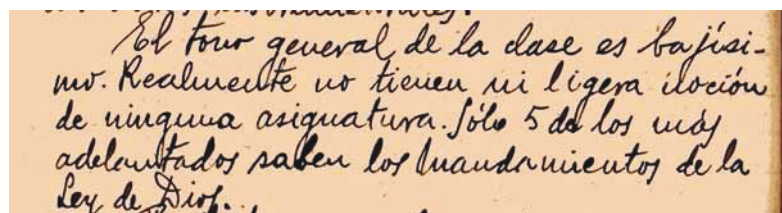 El tono general de la clase es bajísi-
mo. Realmente no tienen ni ligera noción
de ninguna asignatura. Sólo 5 de los más
adelantados saben los Mandamientos de la
Ley de Dios.